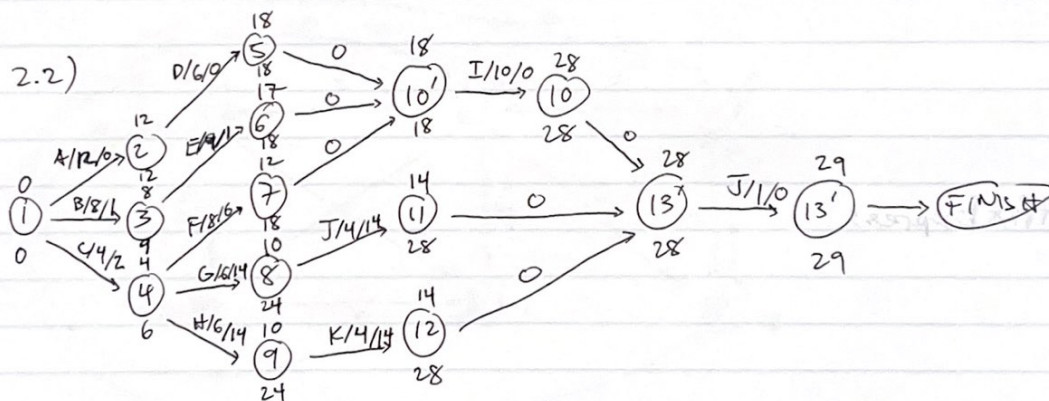 2.2)
0
1
0
A/12/0
B/8/1
C/4/2
12
2
12
8
3
9
4
4
6
D/6/0
E/9/1
F/8/6
G/6/14
H/6/14
18
5
18
17
6
18
12
7
18
10
8
24
10
9
24
0
0
0
J/4/14
K/4/14
18
10'
18
14
11
28
14
12
28
I/10/0
28
10
28
0
0
0
28
13'
28
J/1/0
29
13'
29
FINISH